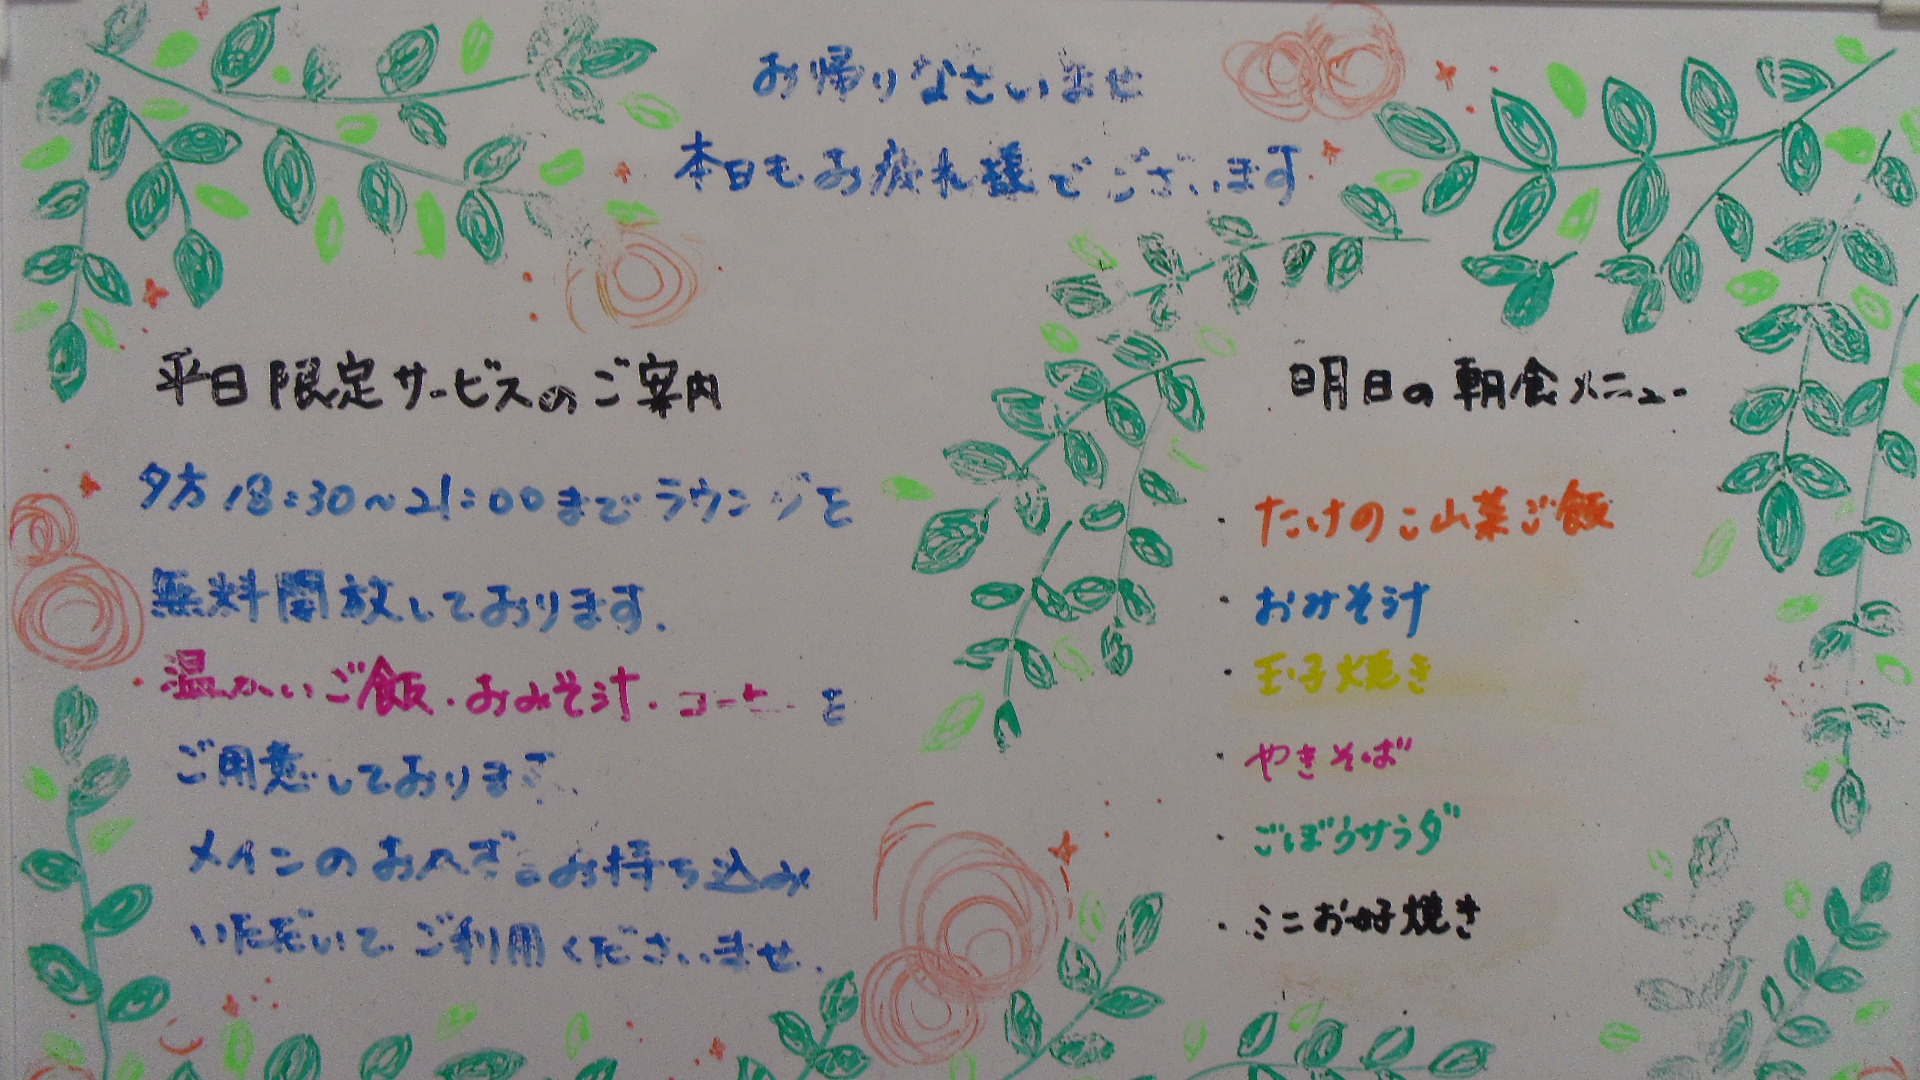 お帰りなさいませ
本日もお疲れ様でございます
平日限定サービスのご案内
夕方18:30〜21:00までラウンジを
無料開放しております.
温かいご飯・おみそ汁・コーヒーを
ご用意しております.
メインのおかずをお持ち込み
いただいてご利用くださいませ.
明日の朝食メニュー
・たけのこ山菜ご飯
・おみそ汁
・玉子焼き
・やきそば
・ごぼうサラダ
・ミニお好焼き